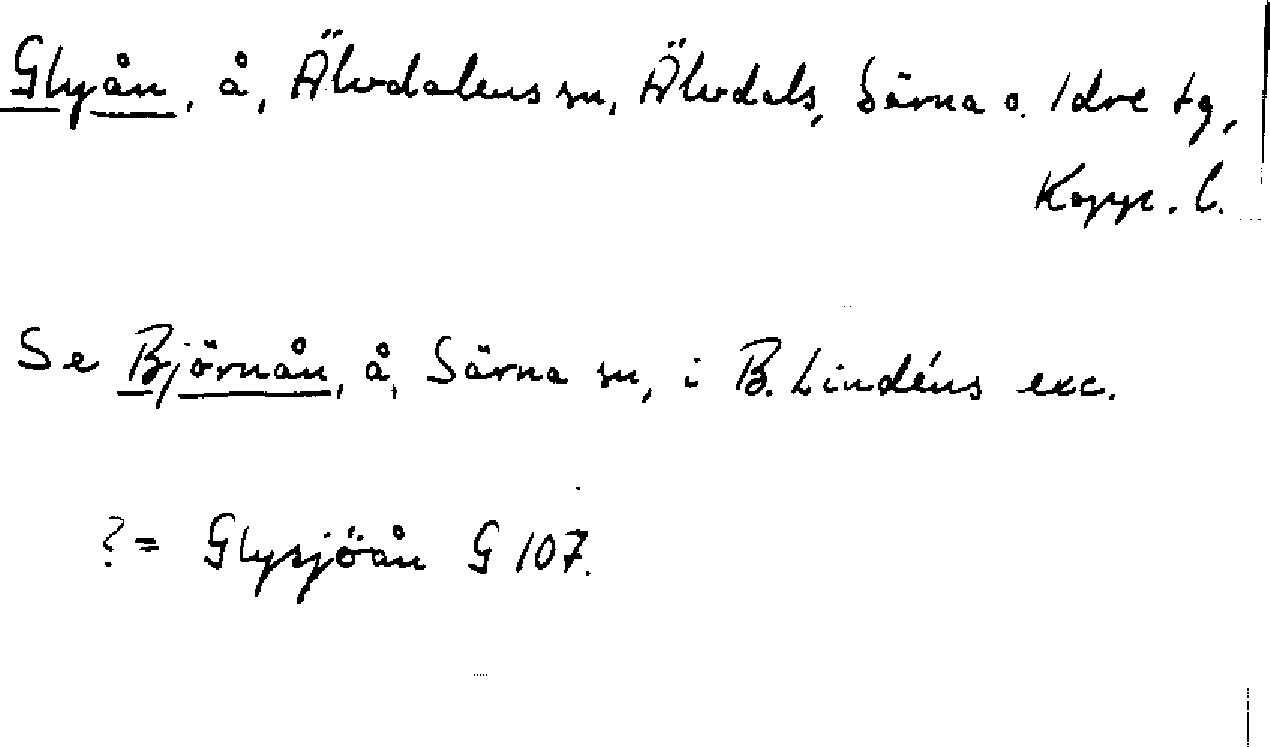 Glyån, å, Älvdalens sn, Älvdals, Särna o. Idre tg,
Kopp. l.
Se Björnån, å, Särna sn, i B. Lindéns exc.
? = Glysjöån G 107.